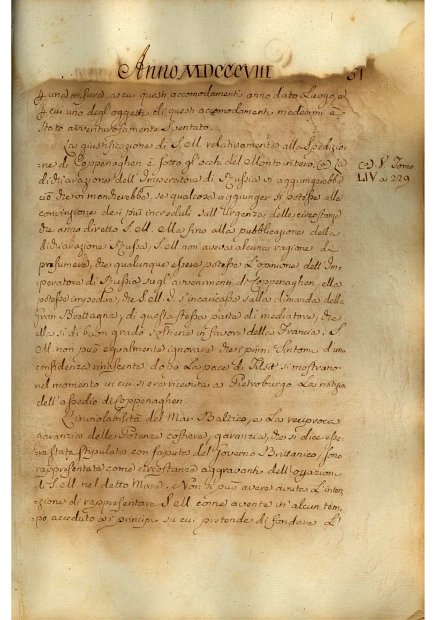 Anno MDCCCVIII
51
una misura, a cui questi accomodamenti anno dato Luogo, e
cui uno degli oggetti di questi accomodamenti medesimi è
stato avventurosamente sventato.
La giustificazione di S. M. relativamente alla spedizio-
ne di Coppenaghen è sotto gl'occhi del Mondo intero. La
(a) V. Tomo
LIV a 229
didiarazione dell'Imperatore di Russia vi aggiungerebbe
ciò che vi mancherebbe, se qualcosa aggiunger si potesse alla
convinzione de' i più increduli sull'urgenza delle circostanze
che anno diretto S. M. Ma fino alla pubblicazione della
didiarazione Russa, S. M. non aveva alcuna ragione di
presumere, che qualunque esser potesse l'opinione dell'Im-
peratore di Russia sugl'avvenimenti di Coppenaghen, ella
potesse impedire, che S. M. I. s'incaricasse sulla dimanda della
Gran Brettagna, di questa stessa parte di mediatore, che
ella si di buon grado sostiene in favore della Francia. S.
M. non può egualmente ignorare che i primi sintomi d'una
confidenza rinascente dopo La pace di Tilsit si mostrano
nel momento in cui si era ricevuta a Pietroburgo La notizia
dell'assedio di Coppenaghen.
L'inviolabilità del Mar Baltico, e La reciproca
garanzia delle Potenze costiere, garanzia, che si dice esse-
re stata stipulata con saputa del Governo Brittanico, sono
rappresentate come circostanze aggravanti dell'operazioni
di S. M. nel detto Mare. Non si può avere avuta L'inten-
zione di rappresentare S. M. come avente in alcun tem-
po acceduto a i principi su cui pretende di fondare L'